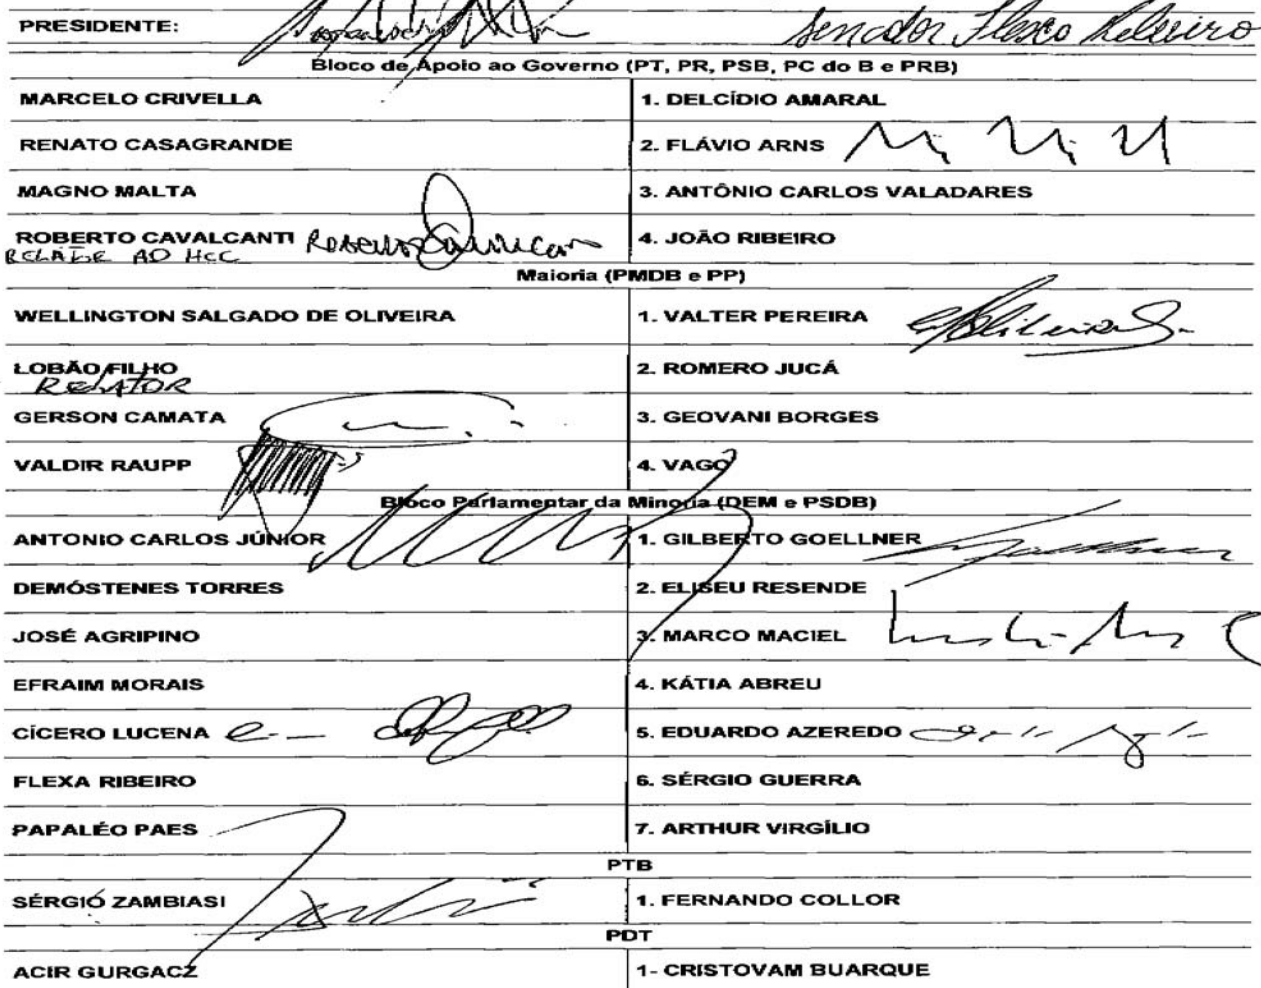 PRESIDENTE: Senador Flexa Ribeiro
Bloco de Apoio ao Governo (PT, PR, PSB, PC do B e PRB)
MARCELO CRIVELLA 1. DELCÍDIO AMARAL
RENATO CASAGRANDE 2. FLÁVIO ARNS
MAGNO MALTA 3. ANTÔNIO CARLOS VALADARES
ROBERTO CAVALCANTI 4. JOÃO RIBEIRO
AD HCC
Maioria (PMDB e PP)
WELLINGTON SALGADO DE OLIVEIRA 1. VALTER PEREIRA
LOBÃO FILHO 2. ROMERO JUCÁ
RELATOR
GERSON CAMATA 3. GEOVANI BORGES
VALDIR RAUPP 4. VAGO
Bloco Parlamentar da Minoria (DEM e PSDB)
ANTONIO CARLOS JÚNIOR 1. GILBERTO GOELLNER
DEMÓSTENES TORRES 2. ELISEU RESENDE
JOSÉ AGRIPINO 3. MARCO MACIEL
EFRAIM MORAIS 4. KÁTIA ABREU
CÍCERO LUCENA 5. EDUARDO AZEREDO
FLEXA RIBEIRO 6. SÉRGIO GUERRA
PAPALÉO PAES 7. ARTHUR VIRGÍLIO
PTB
SÉRGIO ZAMBIASI 1. FERNANDO COLLOR
PDT
ACIR GURGACZ 1- CRISTOVAM BUARQUE